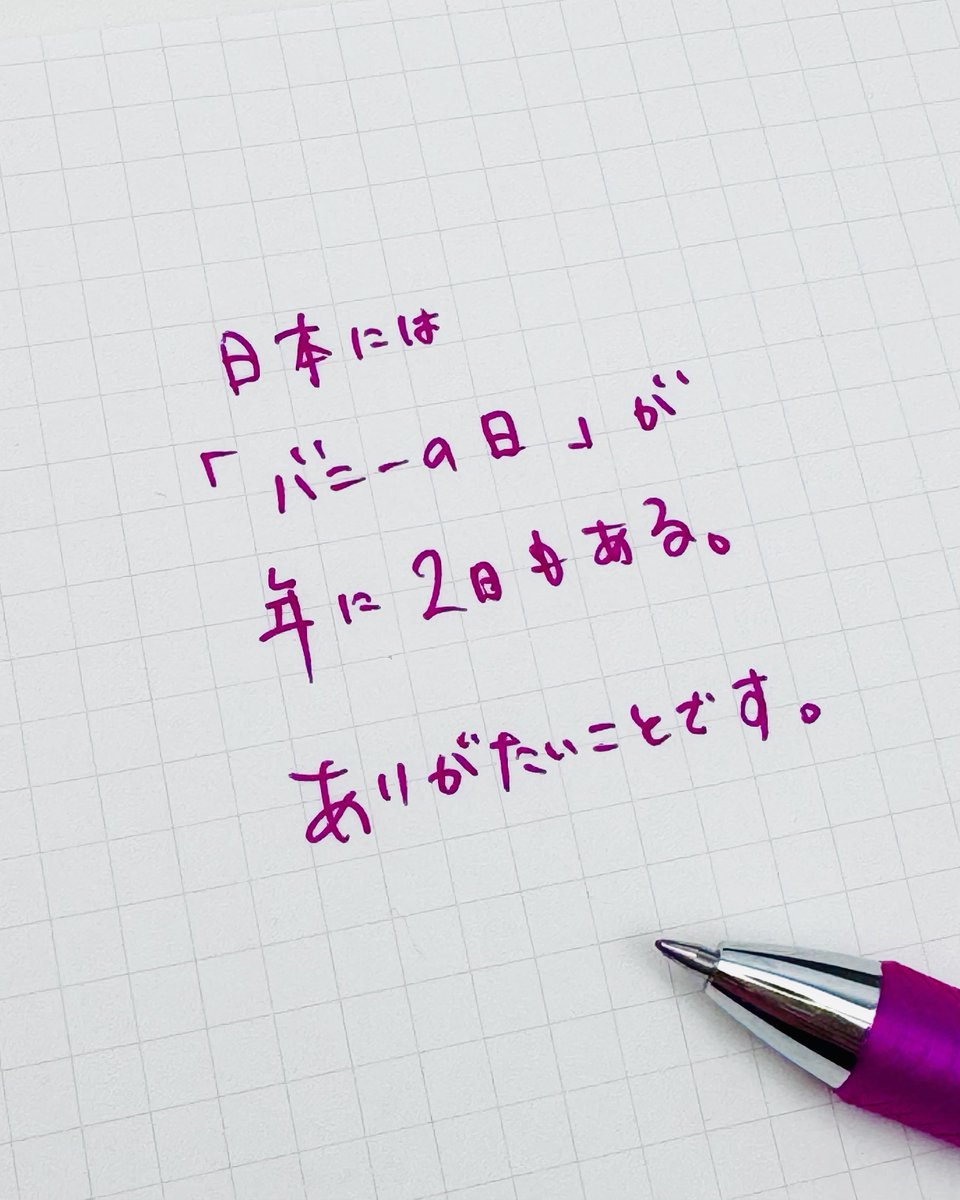 日本には
「バニーの日」が
年に2日もある。
ありがたいことです。